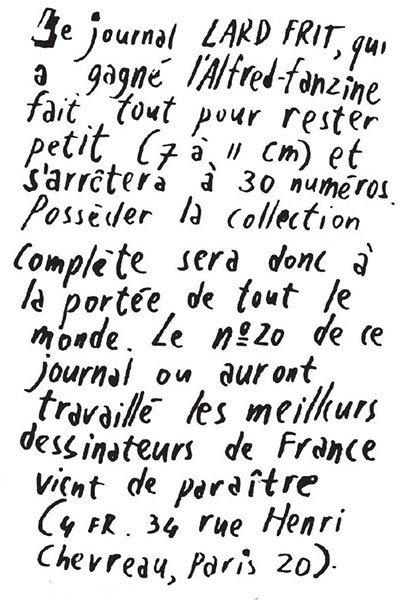 Le journal LARD FRIT, qui
a gagné l'Alfred-fanzine
fait tout pour rester
petit (7 à 11 cm) et
s'arrêtera à 30 numéros.
Posséder la collection
complète sera donc à
la portée de tout le
monde. Le nº20 de ce
journal ou auront
travaillé les meilleurs
dessinateurs de France
vient de paraître
(4 FR. 34 rue Henri
Chevreau, Paris 20).